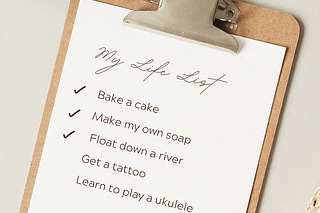 My Life List
Bake a cake
Make my own soap
Float down a river
Get a tattoo
Learn to play a ukulele